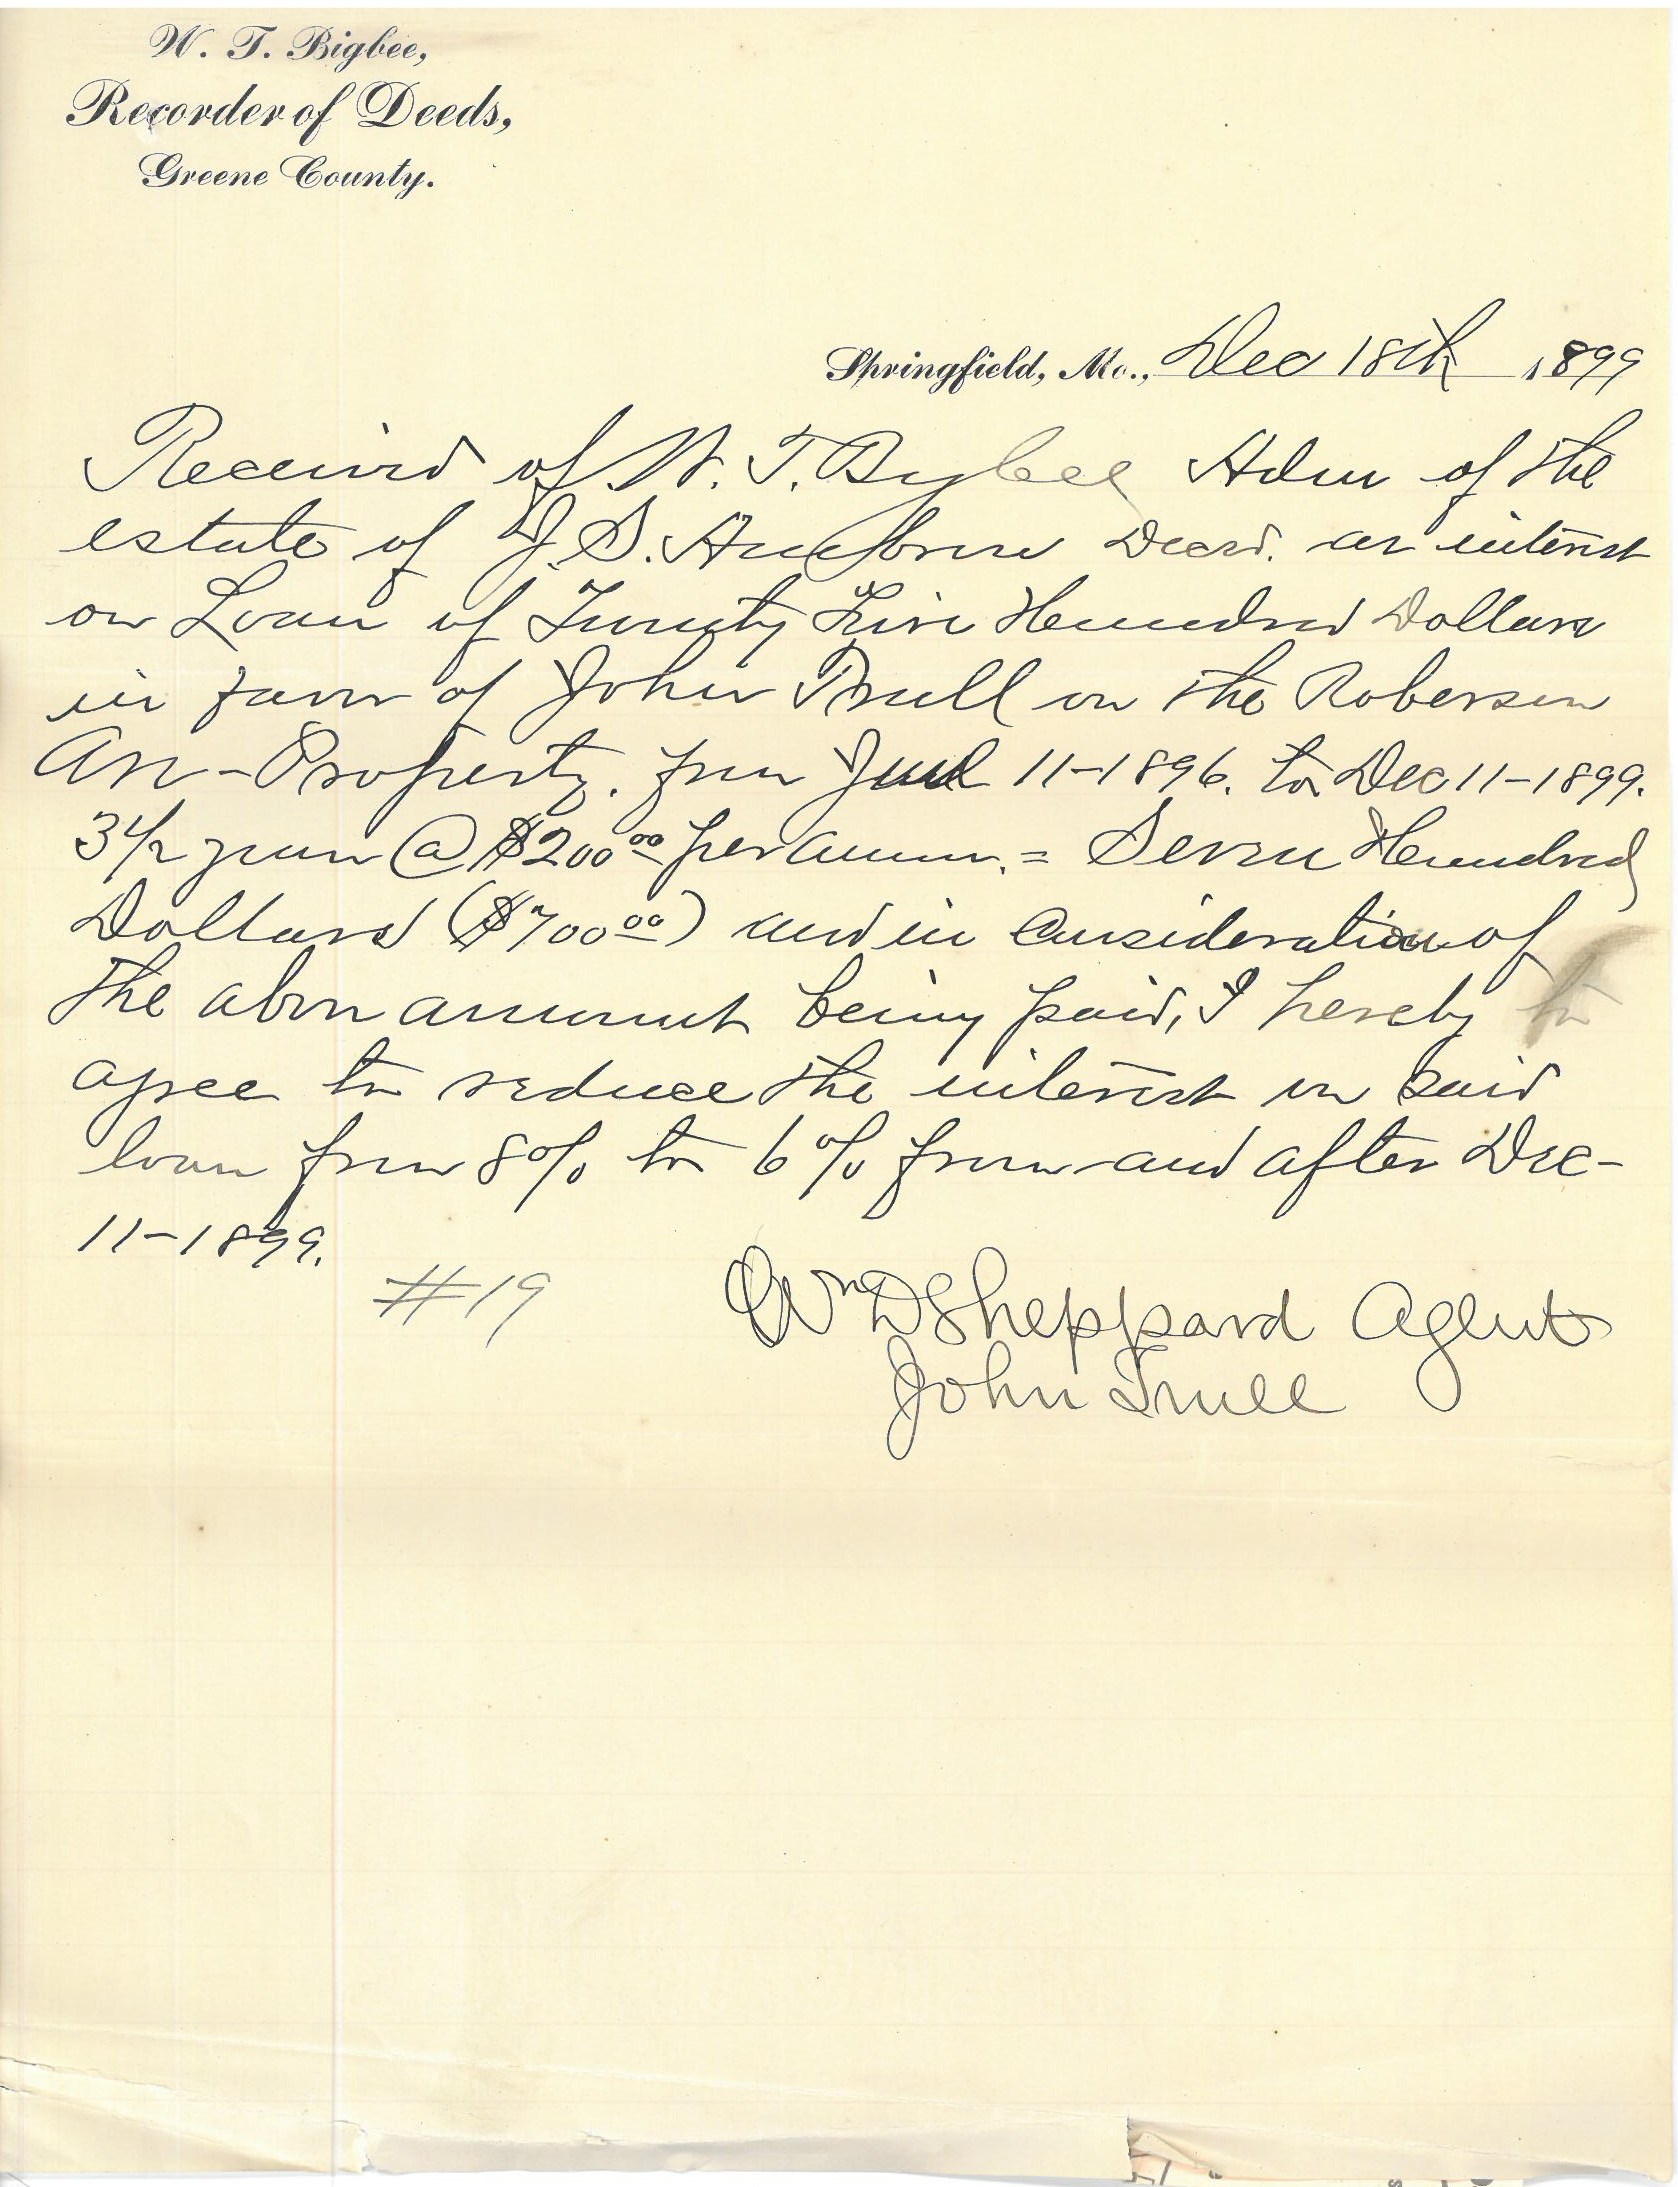 W. T. Bigbee,
Recorder of Deeds,
Greene County.
Springfield, Mo., Dec 18th 1899
Received of W. T. Bigbee Adm of the
estate of J. S. Decsd. as interest
on Loan of Twenty Five Hundred Dollars
in favor of John Trull on the Roberson
Ave-Property. from June 11-1896. to Dec 11-1899.
3 1/2 years @ $200 00 per annum. = Seven Hundred
Dollars ($700 00) and in Consideration of
the above amount being paid, I hereby to
agree to reduce the interest on said
loan from 8% to 6% from and after Dec-
11-1899.
#19
Wm D Sheppard Agent
John Trull